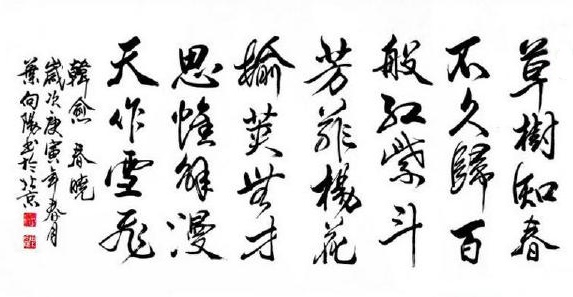 草樹知春
不久歸百
般紅紫斗
芳菲楊花
榆莢無才
思惟解漫
天作雪飛
韓愈 春曉
歲次庚寅年春月
葉向陽书於北京